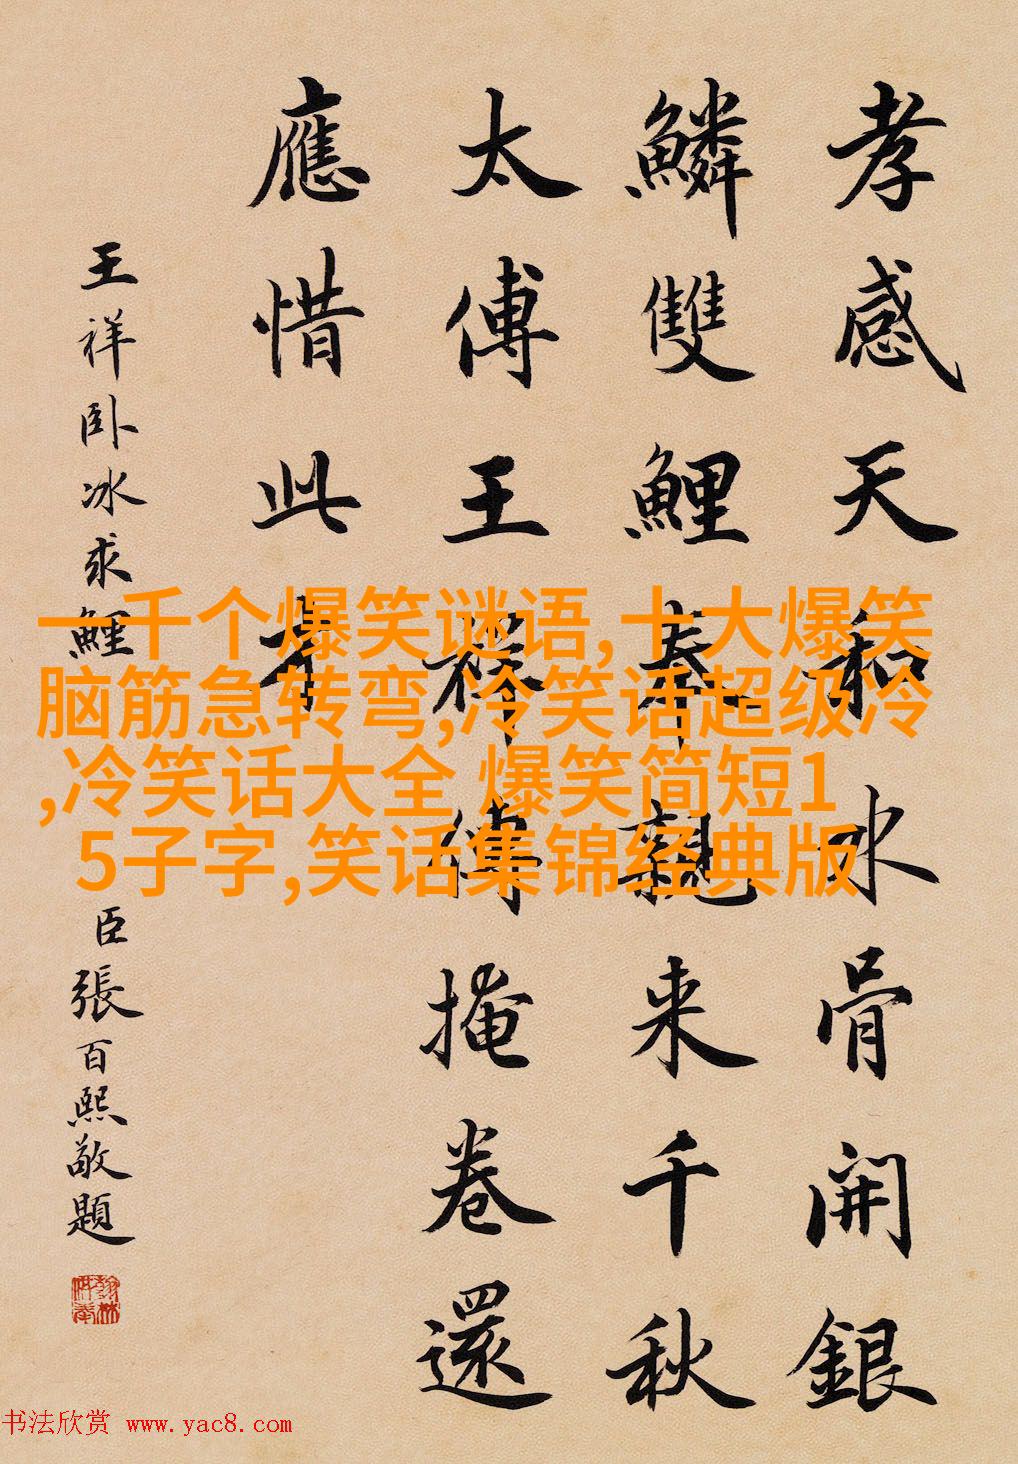 孝感天和水骨開銀
鱗雙鯉奉親来千秋
太傅王祥傳掩卷還
應惜此才
王祥卧冰求鯉
臣張百熙敬題
一千个爆笑谜语,十大爆笑
脑筋急转弯,冷笑话超级冷
,冷笑话大全 爆笑简短1
5子字,笑话集锦经典版
书法欣赏 www.yac8.com